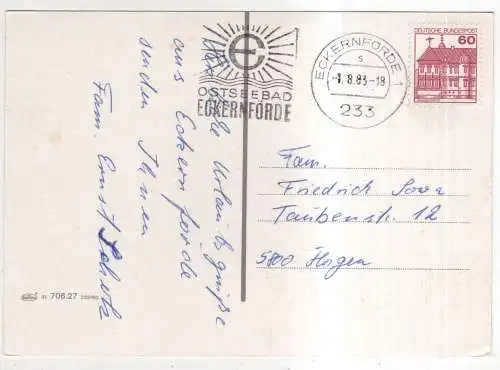 DEUTSCHE BUNDESPOST
60
OSTSEEBAD
ECKERNFÖRDE
ECKERNFÖRDE 1
s
-1.8.83-18
233
Urlaubsgrüße
aus Eckernförde
senden Ihnen
Fam. Ernst Scholz
Fam.
Friedrich Sowa
Taubenstr. 12
5800 Hagen
706.27